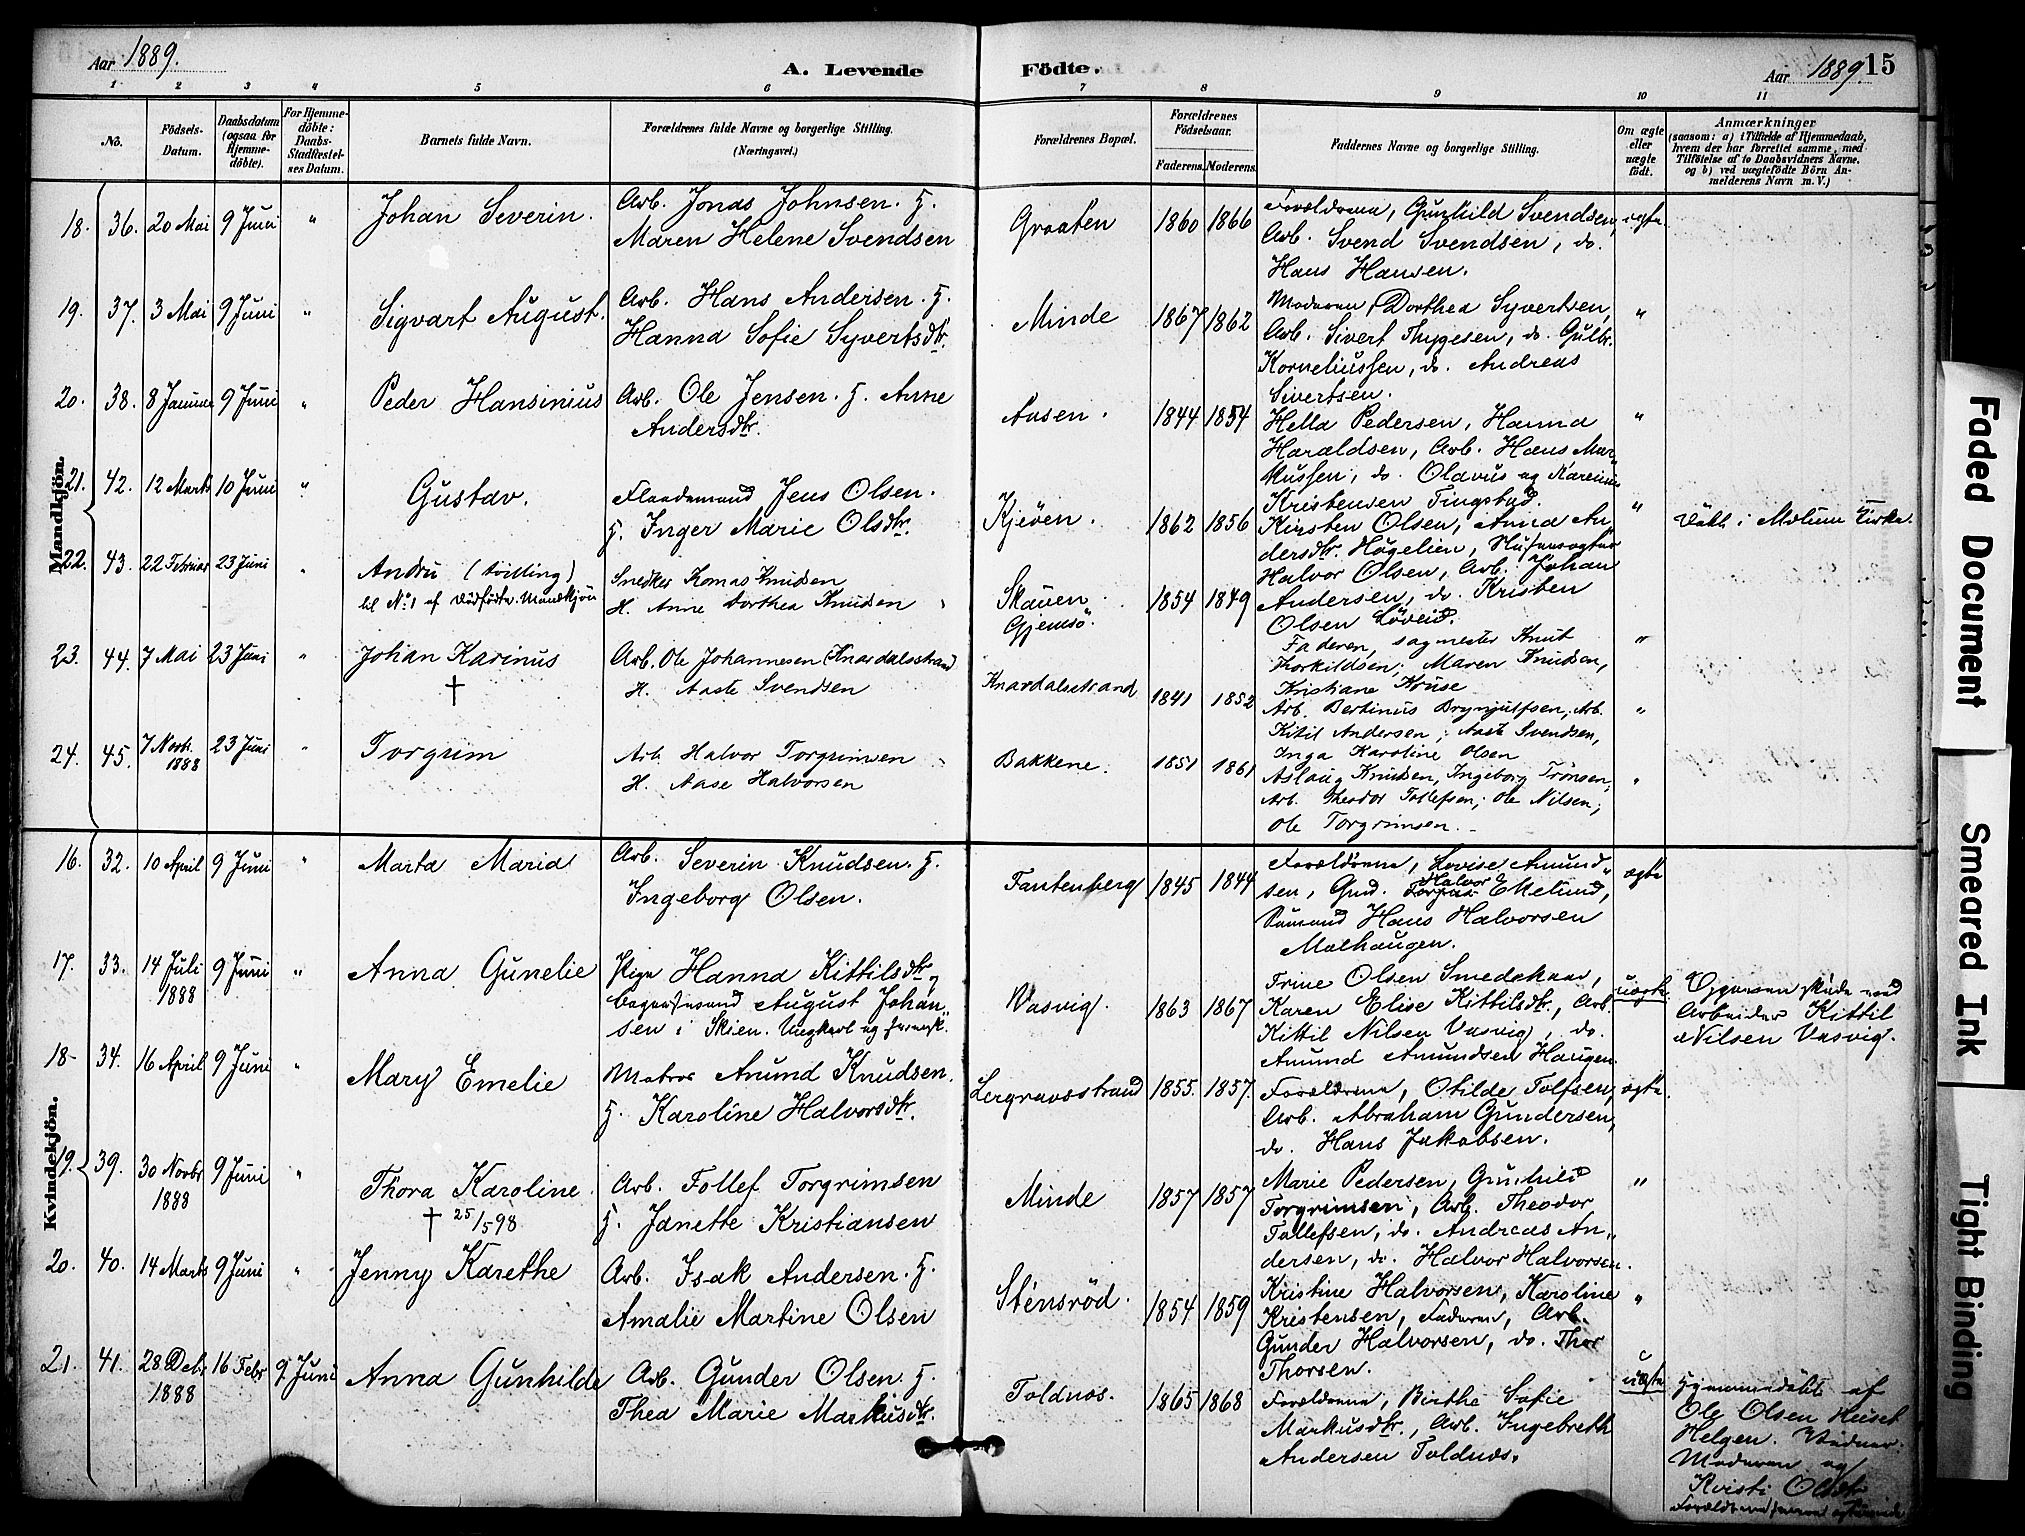 Aar 1889.
A. Levende Födte.
Aar 1889. 15
1 2 3 4 5 6 7 8 9 10 11
No.
Födsels-
Datum.
Daabsdatum
(ogsaa for
Hjemme-
döbte).
For Hjemme-
döbte:
Daabs-
Stadfæstel-
ses Datum.
Barnets fulde Navn.
Forældrenes fulde Navne og borgerlige Stilling.
(Næringsvei.)
Forældrenes Bopæl.
Forældrenes
Födselsaar.
Faderens. Moderens.
Faddernes Navne og borgerlige Stilling.
Om ægte
eller
uægte
födt.
Anmærkninger
(saasom: a) i Tilfælde af Hjemmedaab,
hvem der har forrettet samme, med
Tilföielse af to Daabsvidners Navne,
og b) ved uægtefödte Börn An-
melderens Navn m. V.)
Mandkjön.
18. 36. 20 Mai 9 Juni " Johan Severin.
Arb. Jonas Johnsen. H.
Maren Helene Svendsen
Graaten 1860 1866
Forældrene, Gunhild Svendsen,
Arb. Svend Svendsen, do.
Hans Hansen.
ægte
19. 37. 3 Mai 9 Juni " Sigvart August.
Arb. Hans Andersen. H.
Hanna Sofie Syvertsdtr.
Minde 1867 1862
Moderen, Dorthea Syvertsen,
Arb. Sivert Thygesen, do. Gulbr.
Korneliussen, do. Andreas
Sivertsen.
"
20. 38. 8 Januar 9 Juni " Peder Hansinius
Arb. Ole Jensen. H. Anne
Andersdtr.
Aasen. 1844 1854
Hella Pedersen, Hanna
Haraldsen, Arb. Hans Mar-
kussen, do. Olavus og Karinius
Kristensen Tingstad.
"
21. 42. 12 Marts 10 Juni " Gustav.
Flaademand Jens Olsen.
H. Inger Marie Olsdtr.
Kjeöen. 1862 1856
Kirsten Olsen, Anna An-
dersdtr. Högelien,
Halvor Olsen, Arb. Johan
Andersen, do. Kristen
Olsen Löveid.
"
Döbt i Mælum Kirke.
22. 43. 22 Februar 23 Juni " Andru (tvilling)
til No 1 af dödfödte Mandkjön
Snedker Tomas Knudsen
H. Anne Dorthea Knudsen
Skauen
Gjemsö. 1854 1849
Faderen, sagmester Knut
Torkildsen; Maren Knudsen,
Kristiane Kruse
"
23. 44. 7 Mai 23 Juni " Johan Karinus
†
Arb. Ole Johannesen Knardalsstrand
H. Aaste Svendsen
Knardalsstrand 1841 1852
Arb. Bertinus Brynjulfsen, Arb.
Kitil Andersen; Aaste Svendsen,
Inga Karoline Olsen
"
24. 45. 7 Novb. 1888 23 Juni " Torgrim
Arb. Halvor Torgrimsen
H. Aase Halvorsen
Bakkene. 1851 1861
Aslaug Knudsen, Ingeborg Trönsen,
Arb. Theodor Tollefsen; Ole Nilsen;
Ole Torgrimsen.
"
Kvindekjön.
16. 32. 10 April 9 Juni " Marta Maria
Arb. Severin Knudsen. H.
Ingeborg Olsen.
Fantenberg 1845 1844
Forældrene, Lovise Amund-
sen, Gmd. Halvor Ekelund,
Hans Halvorsen
Mælhaugen.
ægte
17. 33. 14 Juli 1888 9 Juni " Anna Gunelie
Pige Hanna Kittilsdtr,
August Johan-
sen i Skien. Ungkarl og
Vasvig. 1863 1867
Trine Olsen Smedskaas,
Karen Elise Kittilsdtr., Arb.
Kittil Nilsen Vasvig, do.
Amund Amundsen Haugen.
uægte
Opgivelsen skede ved
Arbeider Kittil
Nilsen Vasvig.
18 34. 16 April 9 Juni " Mary Emelie
Matros Anund Knudsen.
H. Karoline Halvorsdtr.
Lergravsstrand 1855. 1857.
Forældrene, Otilde Tolfsen,
Arb. Abraham Gundersen,
do. Hans Jakobsen.
ægte.
19. 39. 30 Novbr 1888 9 Juni " Thora Karoline.
† 25/5 98
Arb. Tollef Torgrimsen
H. Janette Kristiansen
Minde 1857 1857
Marie Pedersen, Gunhild
Torgrimsen, Arb. Theodor
Tollefsen, do. Andreas An-
dersen, do. Halvor Halvorsen.
"
20. 40. 14 Marts 9 Juni " Jenny Karethe
Arb. Isak Andersen. H.
Amalie Martine Olsen
Stensröd. 1854 1859
Kristine Halvorsen, Karoline
Kristensen, Faderen, Arb.
Gunder Halvorsen, do. Thor
Thorsen.
"
21. 41. 28 Deb. 1888 16 Febr 9 Juni Anna Gunhilde
Arb. Gunder Olsen. H.
Thea Marie Markusdtr.
Toldnæs. 1865 1868
Forældrene, Birthe Sofie
Markusdtr., Arb. Ingebreth
Andersen Toldnæs.
uægte
Hjemmedöbt af
Ole Olsen Huset
Helgen. Vidner
Moderen og
Kristi Olsdtr
Faded Document
Smeared Ink
Tight Binding